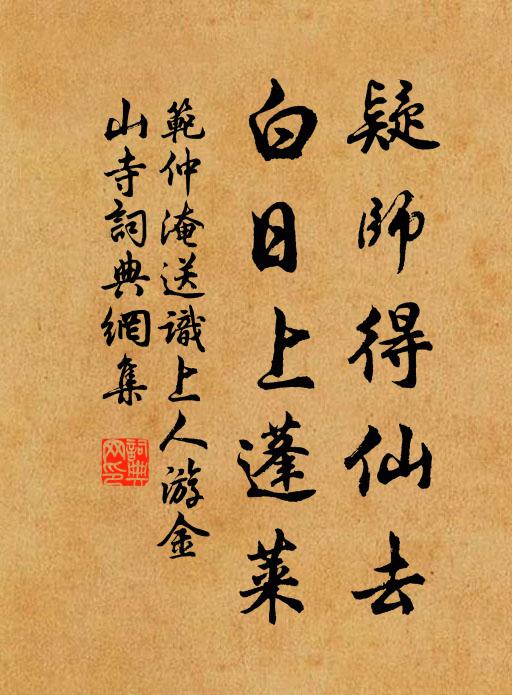 疑師得仙去
白日上蓬萊
範仲淹送識上人游金
山寺詞典網集
詞典网印